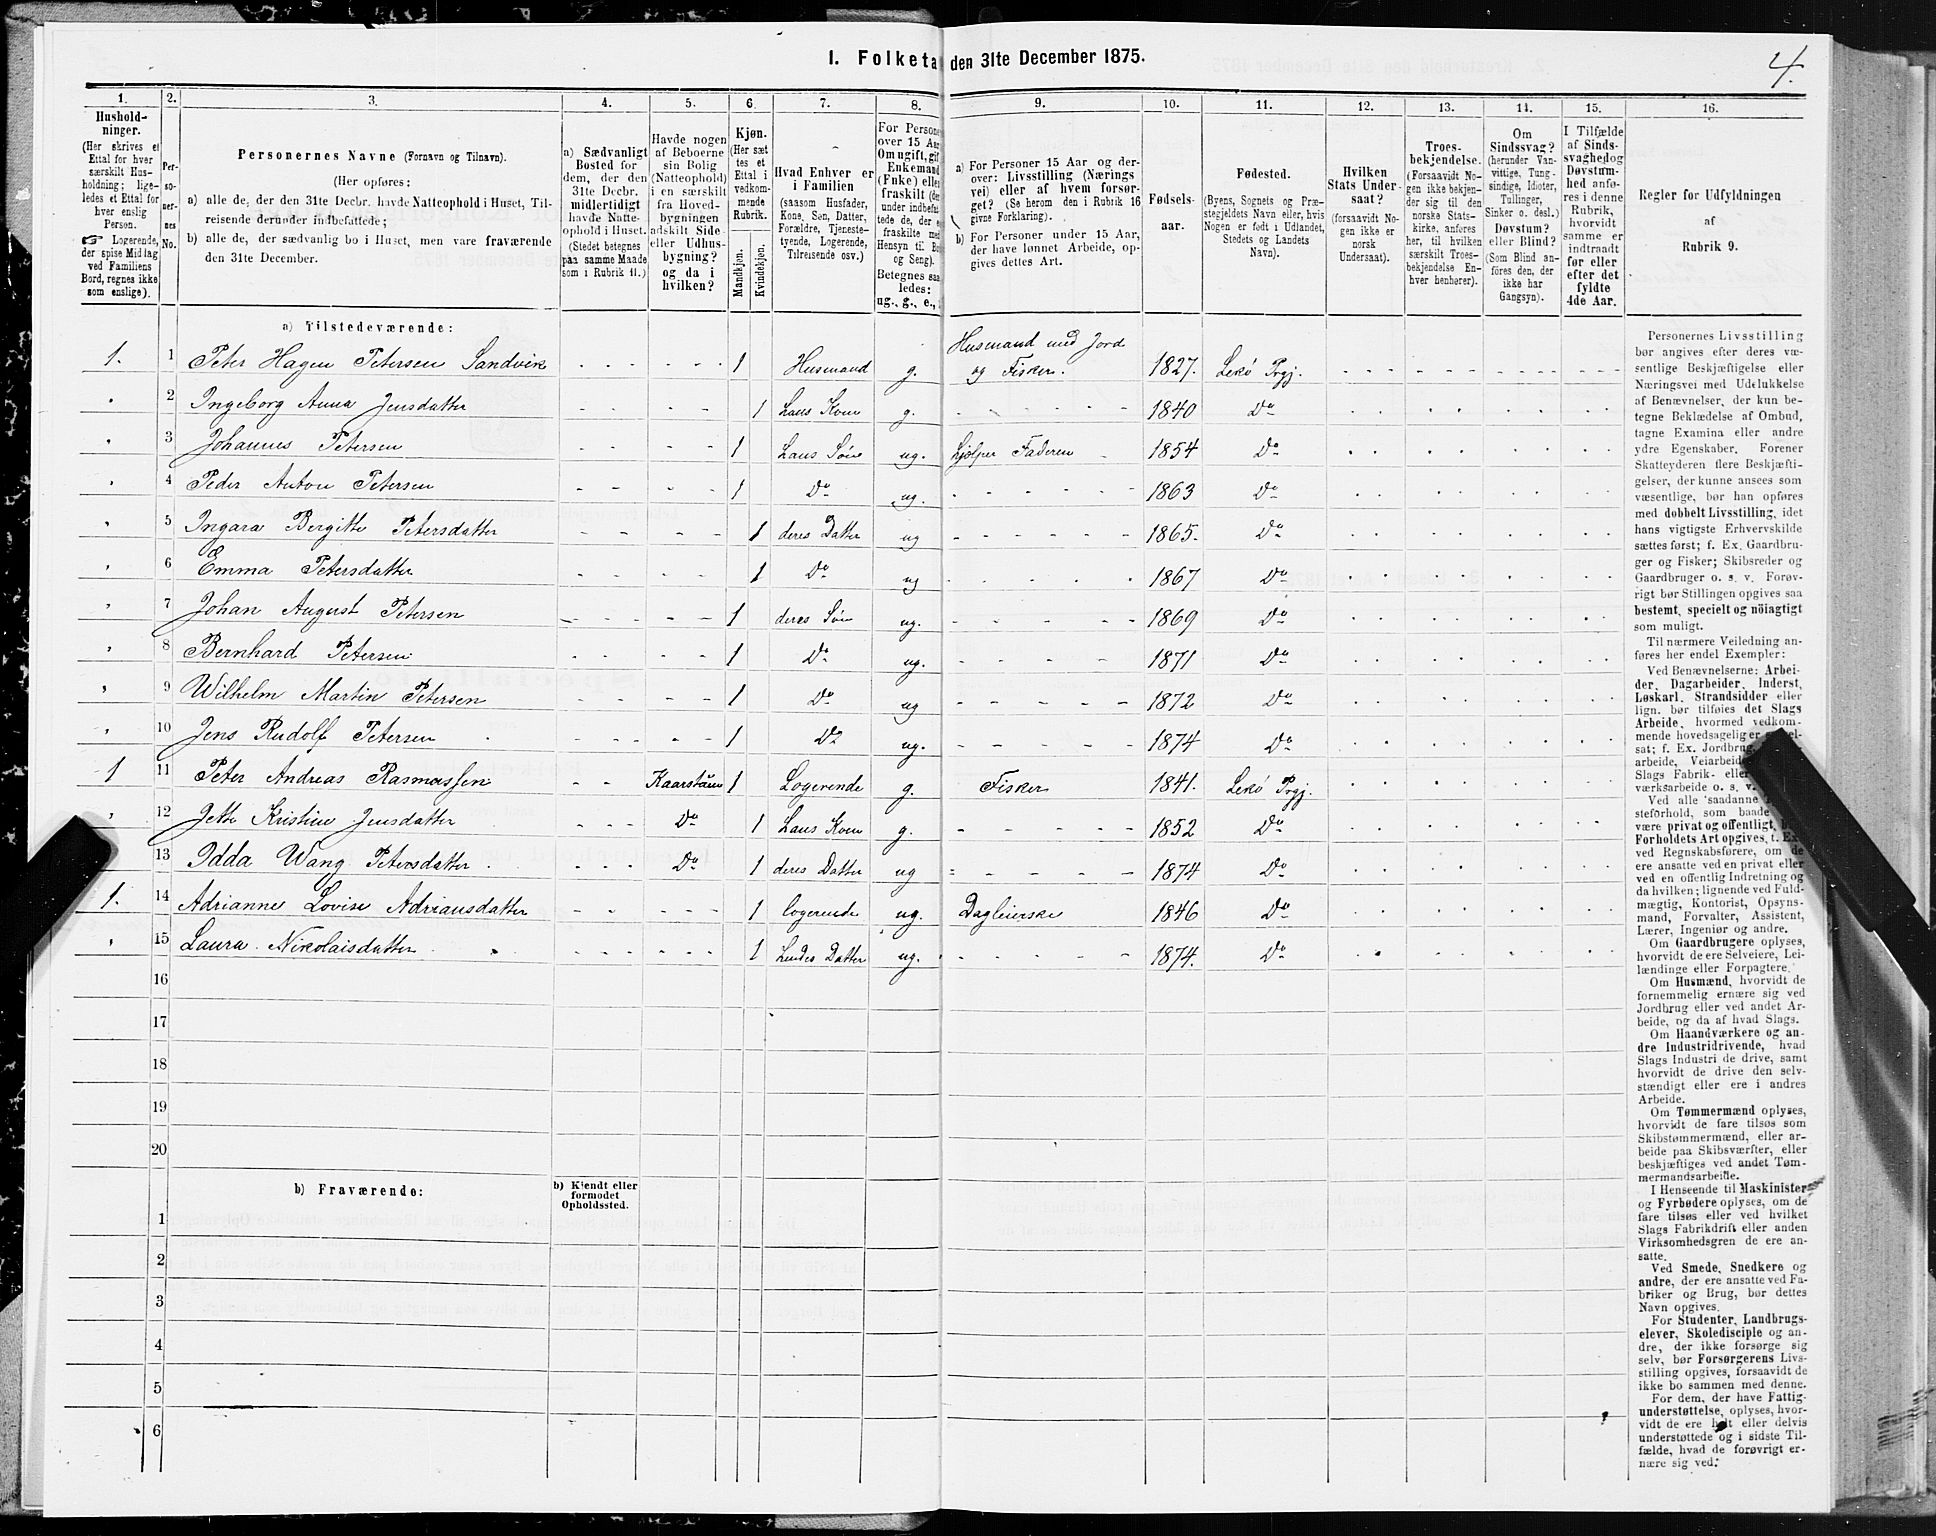 I. Folketa den 31te December 1875.
4.
1. 2. 3. 4. 5. 6. 7. 8. 9. 10. 11. 12. 13. 14. 15. 16.
Hushold-
ninger.
(Her skrives et
Ettal for hver
særskilt Hus-
holdning; lige-
ledes et Ettal for
hver enslig
Person.
☞ Logerende,
der spise Middag
ved Familiens
Bord, regnes ikke
som enslige).
Per-
so-
ner-
nes
No.
Personernes Navne (Fornavn og Tilnavn).
(Her opføres:
a) alle de, der den 31te Decbr. havde Natteophold i Huset, Til-
reisende derunder indbefattede;
b) alle de, der sædvanlig bo i Huset, men vare fraværende
den 31te December.
a) Sædvanligt
Bosted for
dem, der den
31te Decbr.
midlertidigt
havde Natte-
ophold i Huset.
(Stedet betegnes
paa samme Maade
som i Rubrik 11.)
Havde nogen
af Beboerne
sin Bolig
(Natteophold)
i en særskilt
fra Hoved-
bygningen
adskilt Side-
eller Udhus-
bygning?
og da i
hvilken?
Kjøn.
(Her sæt
tes et
Ettal i
vedkom-
mende
Rubrik.
Mandkjøn.
Kvindekjøn.
Hvad Enhver er
i Familien
(saasom Husfader,
Kone, Søn, Datter,
Forældre, Tjeneste-
tyende, Logerende,
Tilreisende osv.)
For Persone
over 15 Aar
Om ugift, gif
Enkemand
(Enke) elle
fraskilt (de
under indbefa
tede de, der e
fraskilte me
Hensyn til Bo
og Seng).
Betegnes saa
ledes:
ug., g., e.,
a) For Personer 15 Aar og der-
over: Livsstilling (Nærings
vei) eller af hvem forsør-
get? (Se herom den i Rubrik 16
givne Forklaring).
b) For Personer under 15 Aar,
der have lønnet Arbeide, op-
gives dettes Art.
Fødsels-
aar.
Fødested.
(Byens, Sognets og Præ-
stegjeldets Navn eller, hvis
Nogen er født i Udlandet,
Stedets og Landets
Navn).
Hvilken
Stats Under-
saat?
(forsaavidt No-
gen ikke er
norsk
Undersaat).
Troes-
bekjendelse.
(Forsaavidt No-
gen ikke bekjen-
der sig til den
norske Stats-
kirke, anføres
her, til hvilken
særskilt Troes-
bekjendelse En-
hver henhører).
Om
Sindssvag?
(herunder Van-
vittige, Tung-
sindige, Idioter,
Tullinger,
Sinker o. desl.)
Døvstum?
eller Blind?
(Som Blind an-
føres den, der
ikke har
Gangsyn).
I Tilfælde
af Sinds-
svaghedog
Døvstum-
hed anfø-
res i denne
Rubrik,
hvorvidt
samme er
indtraadt
før eller
efter det
fyldte
4de Aar.
Regler for Udfyldningen
af
Rubrik 9.
a) Tilstedeværende:
1. 1 Peter Hagen Petersen Sandvik 1 Husmand g. Husmand med Jord
og Fisker. 1827. Lekø Prgj.
" 2 Ingeborg Anna Jensdatter 1 Hans Kone g. 1840 Do
" 3 Johannes Petersen 1 Hans Søn ug. hjelper Faderen 1854 Do
" 4 Peder Anton Petersen 1 Do ug. 1863 Do
" 5 Ingara Bergitte Petersdatter 1 deres Datter ug 1865. Do
" 6 Emma Petersdatter 1 Do ug 1867 Do
" 7 Johan August Petersen 1 deres Søn ug. 1869 Do
" 8 Bernhard Petersen 1 Do ug. 1871 Do
" 9 Wilhelm Martin Petersen 1 Do ug 1872 Do
" 10 Jens Rudolf Petersen 1 Do ug. 1874 Do
1 11 Peter Andreas Rasmussen Kaarstuen 1 Logerende g. Fisker 1841. Lekø Prgj.
" 12 Jette Kristine Jensdatter Do 1 Hans Kone g. 1852 Do
" 13 Idda Wang Petersdatter Do 1 deres Datter ug 1874 Do
1. 14 Adrianne Lovise Adriansdatter 1 logerende ug. Dagleierske 1846 Do
" 15 Laura Nikolaisdatter 1 Hendes Datter ug. 1874. Do
16
17
18
19
20
b) Fraværende:
b) Kjendt eller
formodet
Opholdssted.
1
2
3
4
5
6
Personernes Livsstilling
bør angives efter deres væ-
sentlige Beskjæftigelse eller
Næringsvei med Udelukkelse
af Benævnelser, der kun be-
tegne Beklædelse af Ombud,
tagne Examina eller andre
ydre Egenskaber. Forener
Skatteyderen flere Beskjæfti-
gelser, der kunne ansees som
væsentlige, bør han opføres
med dobbelt Livsstilling, idet
hans vigtigste Erhvervskilde
sættes først; f. Ex. Gaardbru-
ger og Fisker; Skibsreder og
Gaardbruger o. s. v. Forøv-
rigt bør Stillingen opgives saa
bestemt, specielt og nöiagtigt
som muligt.
Til nærmere Veiledning an-
føres her endel Exempler:
Ved Benævnelserne: Arbei-
der, Dagarbeider, Inderst,
Løskarl, Strandsidder eller
lign. bør tilføies det Slags
Arbeide, hvormed vedkom-
mende hovedsagelig er
sat; f. Ex. Jordbrug,
arbeide, Veiarbeide
Slags Fabrik- eller
værksarbeide o. s. v.
Ved alle saadanne
steforhold, som baade
være privat og offentligt,
Forholdets Art opgives, t. Ex.
ved Regnskabsførere, om de
ere ansatte ved en privat eller
ved en offentlig Indretning og
da hvilken; lignende ved Fuld-
mægtig, Kontorist, Opsyns-
mand, Forvalter, Assistent,
Lærer, Ingeniør og andre.
Om Gaardbrugere oplyses,
hvorvidt de ere Selveiere, Lei-
lændinge eller Forpagtere.
Om Husmænd, hvorvidt de
fornemmelig ernære sig ved
Jordbrug eller ved andet Ar-
beide, og da af hvad Slags.
Om Haandværkere og an-
dre Industridrivende, hvad
Slags Industri de drive, samt
hvorvidt de drive den selv-
stændigt eller ere i andres
Arbeide.
Om Tømmermænd oplyses,
hvorvidt de fare tilsøs som
Skibstømmermænd, eller ar-
beide paa Skibsværfter, eller
beskjæftiges ved andet Tøm-
mermandsarbeide.
I Henseende til Maskinister
og Fyrbødere oplyses, om de
fare tilsøs eller ved hvilket
Slags Fabrikdrift eller anden
Virksomhedsgren de ere an-
satte.
Ved Smede, Snedkere og
andre, der ere ansatte ved Fa-
briker og Brug, bør dettes
Navn opgives.
For Studenter, Landbrugs-
elever, Skoledisciple og an-
dre, der ikke forsørge sig
selv, bør Forsørgerens Livs-
stilling opgives, forsaavidt de
ikke bo sammen med denne.
For dem, der have Fattig-
understøttelse, oplyses, hvor-
vidt de ere helt eller delvis
understøttede og i sidste Til-
fælde, hvad de forøvrigt er-
nære sig ved.